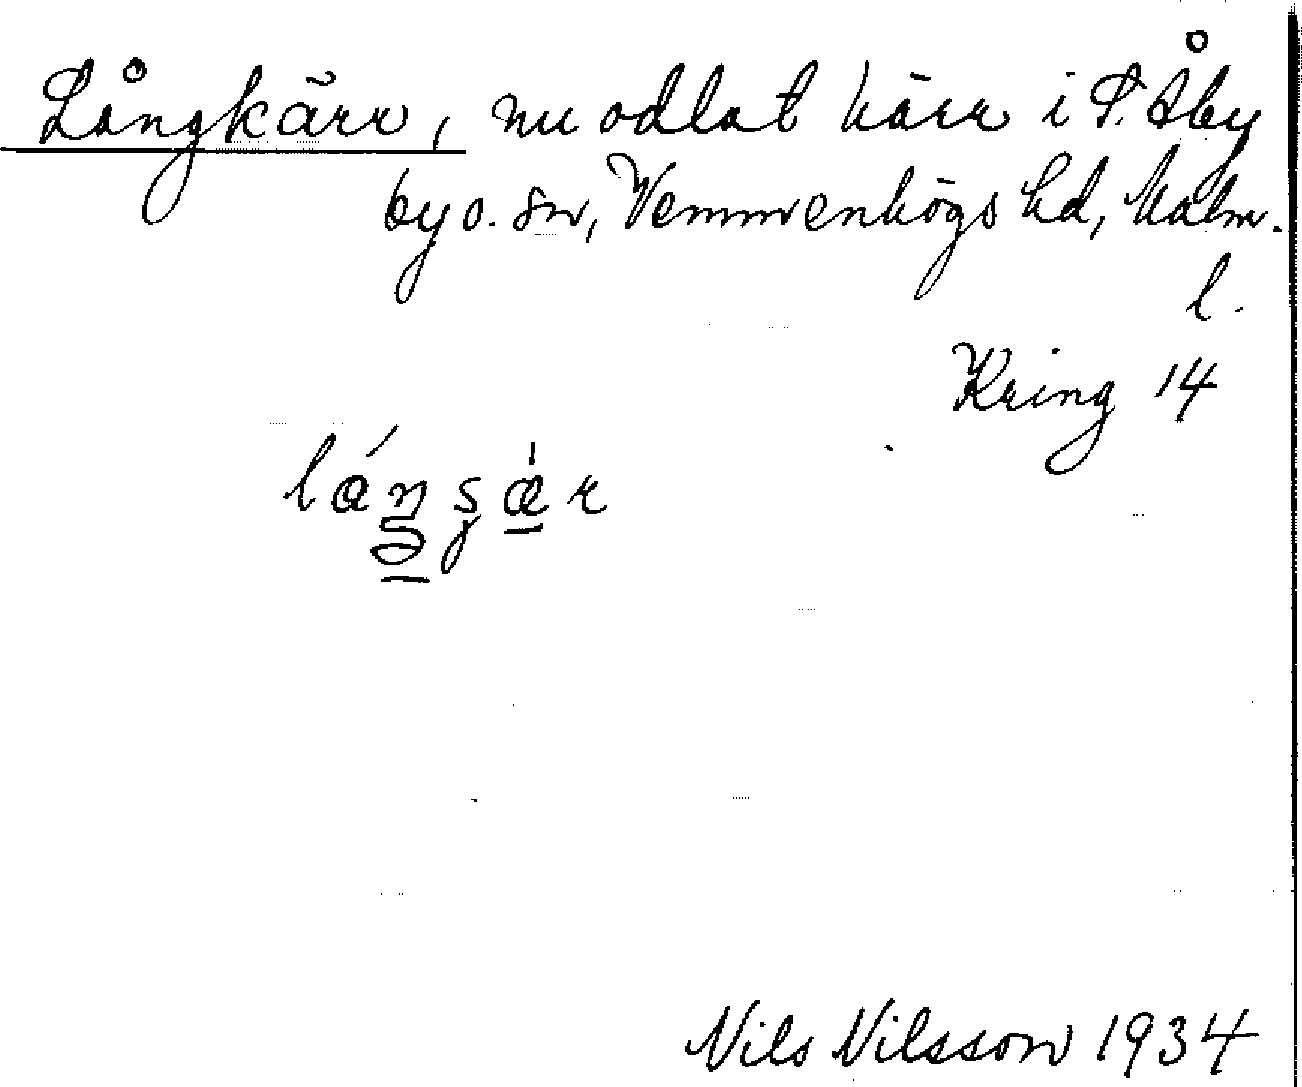 Långkärr, nu odlat kärr i Ö. Åby
by o. sn, Vemmenhögs hd, Malm.
l.
Kring 14
Nils Nilsson 1934